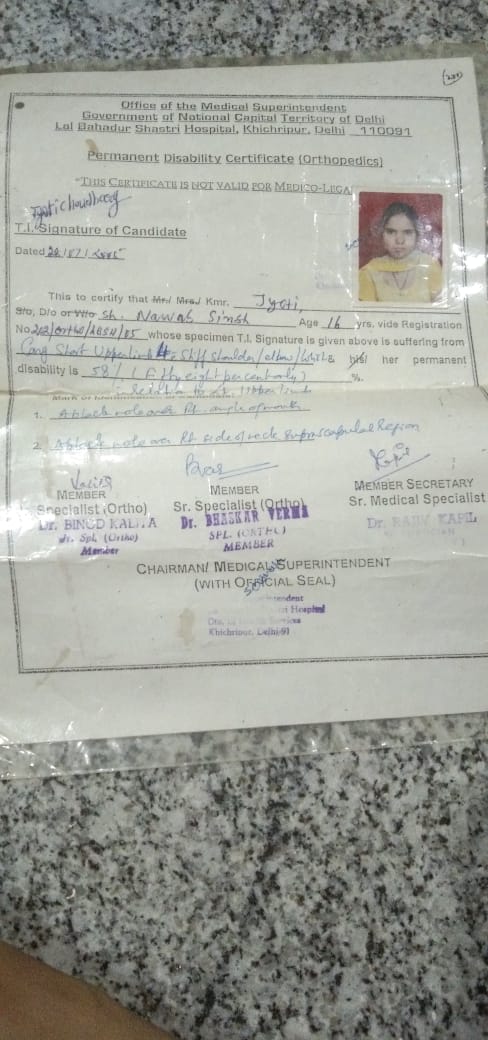 Office of the Medical Superintendent
Government of National Capital Territory of Delhi
Lal Bahadur Shastri Hospital, Khichripur, Delhi 110091
Permanent Disability Certificate (Orthopedics)
"THIS CERTIFICATE IS NOT VALID FOR MEDICO-LEGA
T.I. Signature of Candidate
Dated
This to certify that Mr./ Mrs./ Kmr. Jyoti,
S/o, D/o or W/o Sh. Nawab Singh Age 16 yrs. vide Registration
No whose specimen T.I. Signature is given above is suffering from
Stiff shoulder/elbow/ & his/ her permanent
disability is 58% (Fifty eight percent only) %.
1. A black mole over Rt. angle of mouth
2. A black mole over Rt side of neck Suprascapular Region
MEMBER
Specialist (Ortho)
Dr. BINOD KALITA
Spl. (Ortho)
Member
MEMBER
Sr. Specialist (Ortho)
Dr. BHASKAR VERMA
SPL. (ORTHO)
MEMBER
MEMBER SECRETARY
Sr. Medical Specialist
Dr. RAJIV KAPIL
CHAIRMAN/ MEDICAL SUPERINTENDENT
(WITH OFFICIAL SEAL)
Hospital
Services
Khichripur, Delhi-91